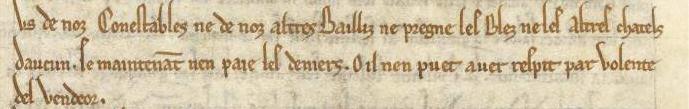 Us de noz Conestables ne de noz altres Bailliz ne pregne les Blez ne les altres chatels
daucun. se maintenāt nen paie les deniers. O il nen puet auer respit par volente
del vendeor.